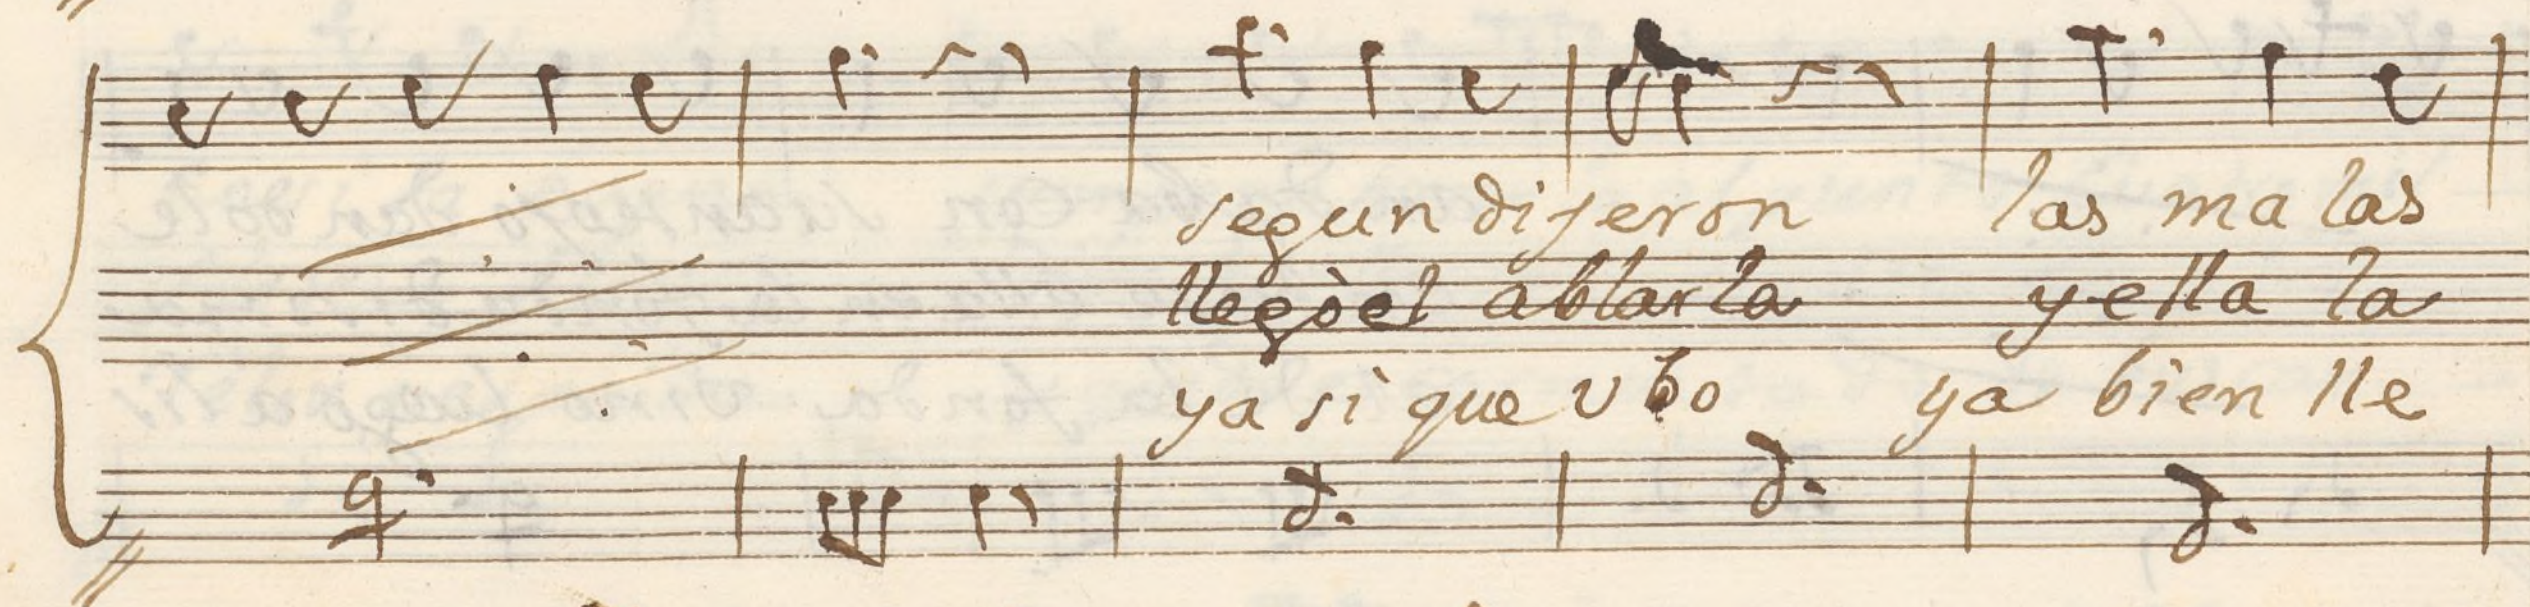 segun dijeron las ma las
llegò el ablar la y ella la
ya sì que vbo ya bien lle